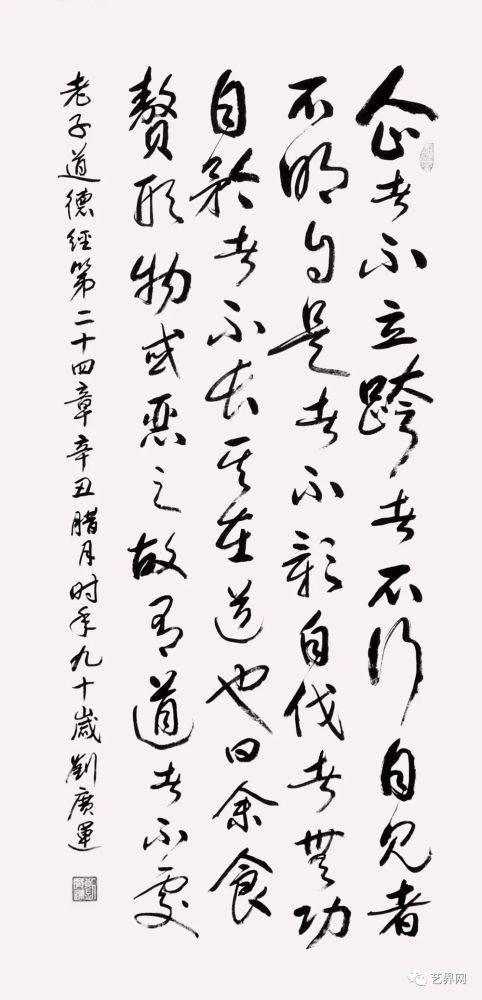 企者不立跨者不行自见者
不明自是者不彰自伐者無功
自矜者不长其在道也曰余食
贅形物或恶之故有道者不處
老子道德經第二十四章辛丑腊月时年九十歲劉廣運
艺界网